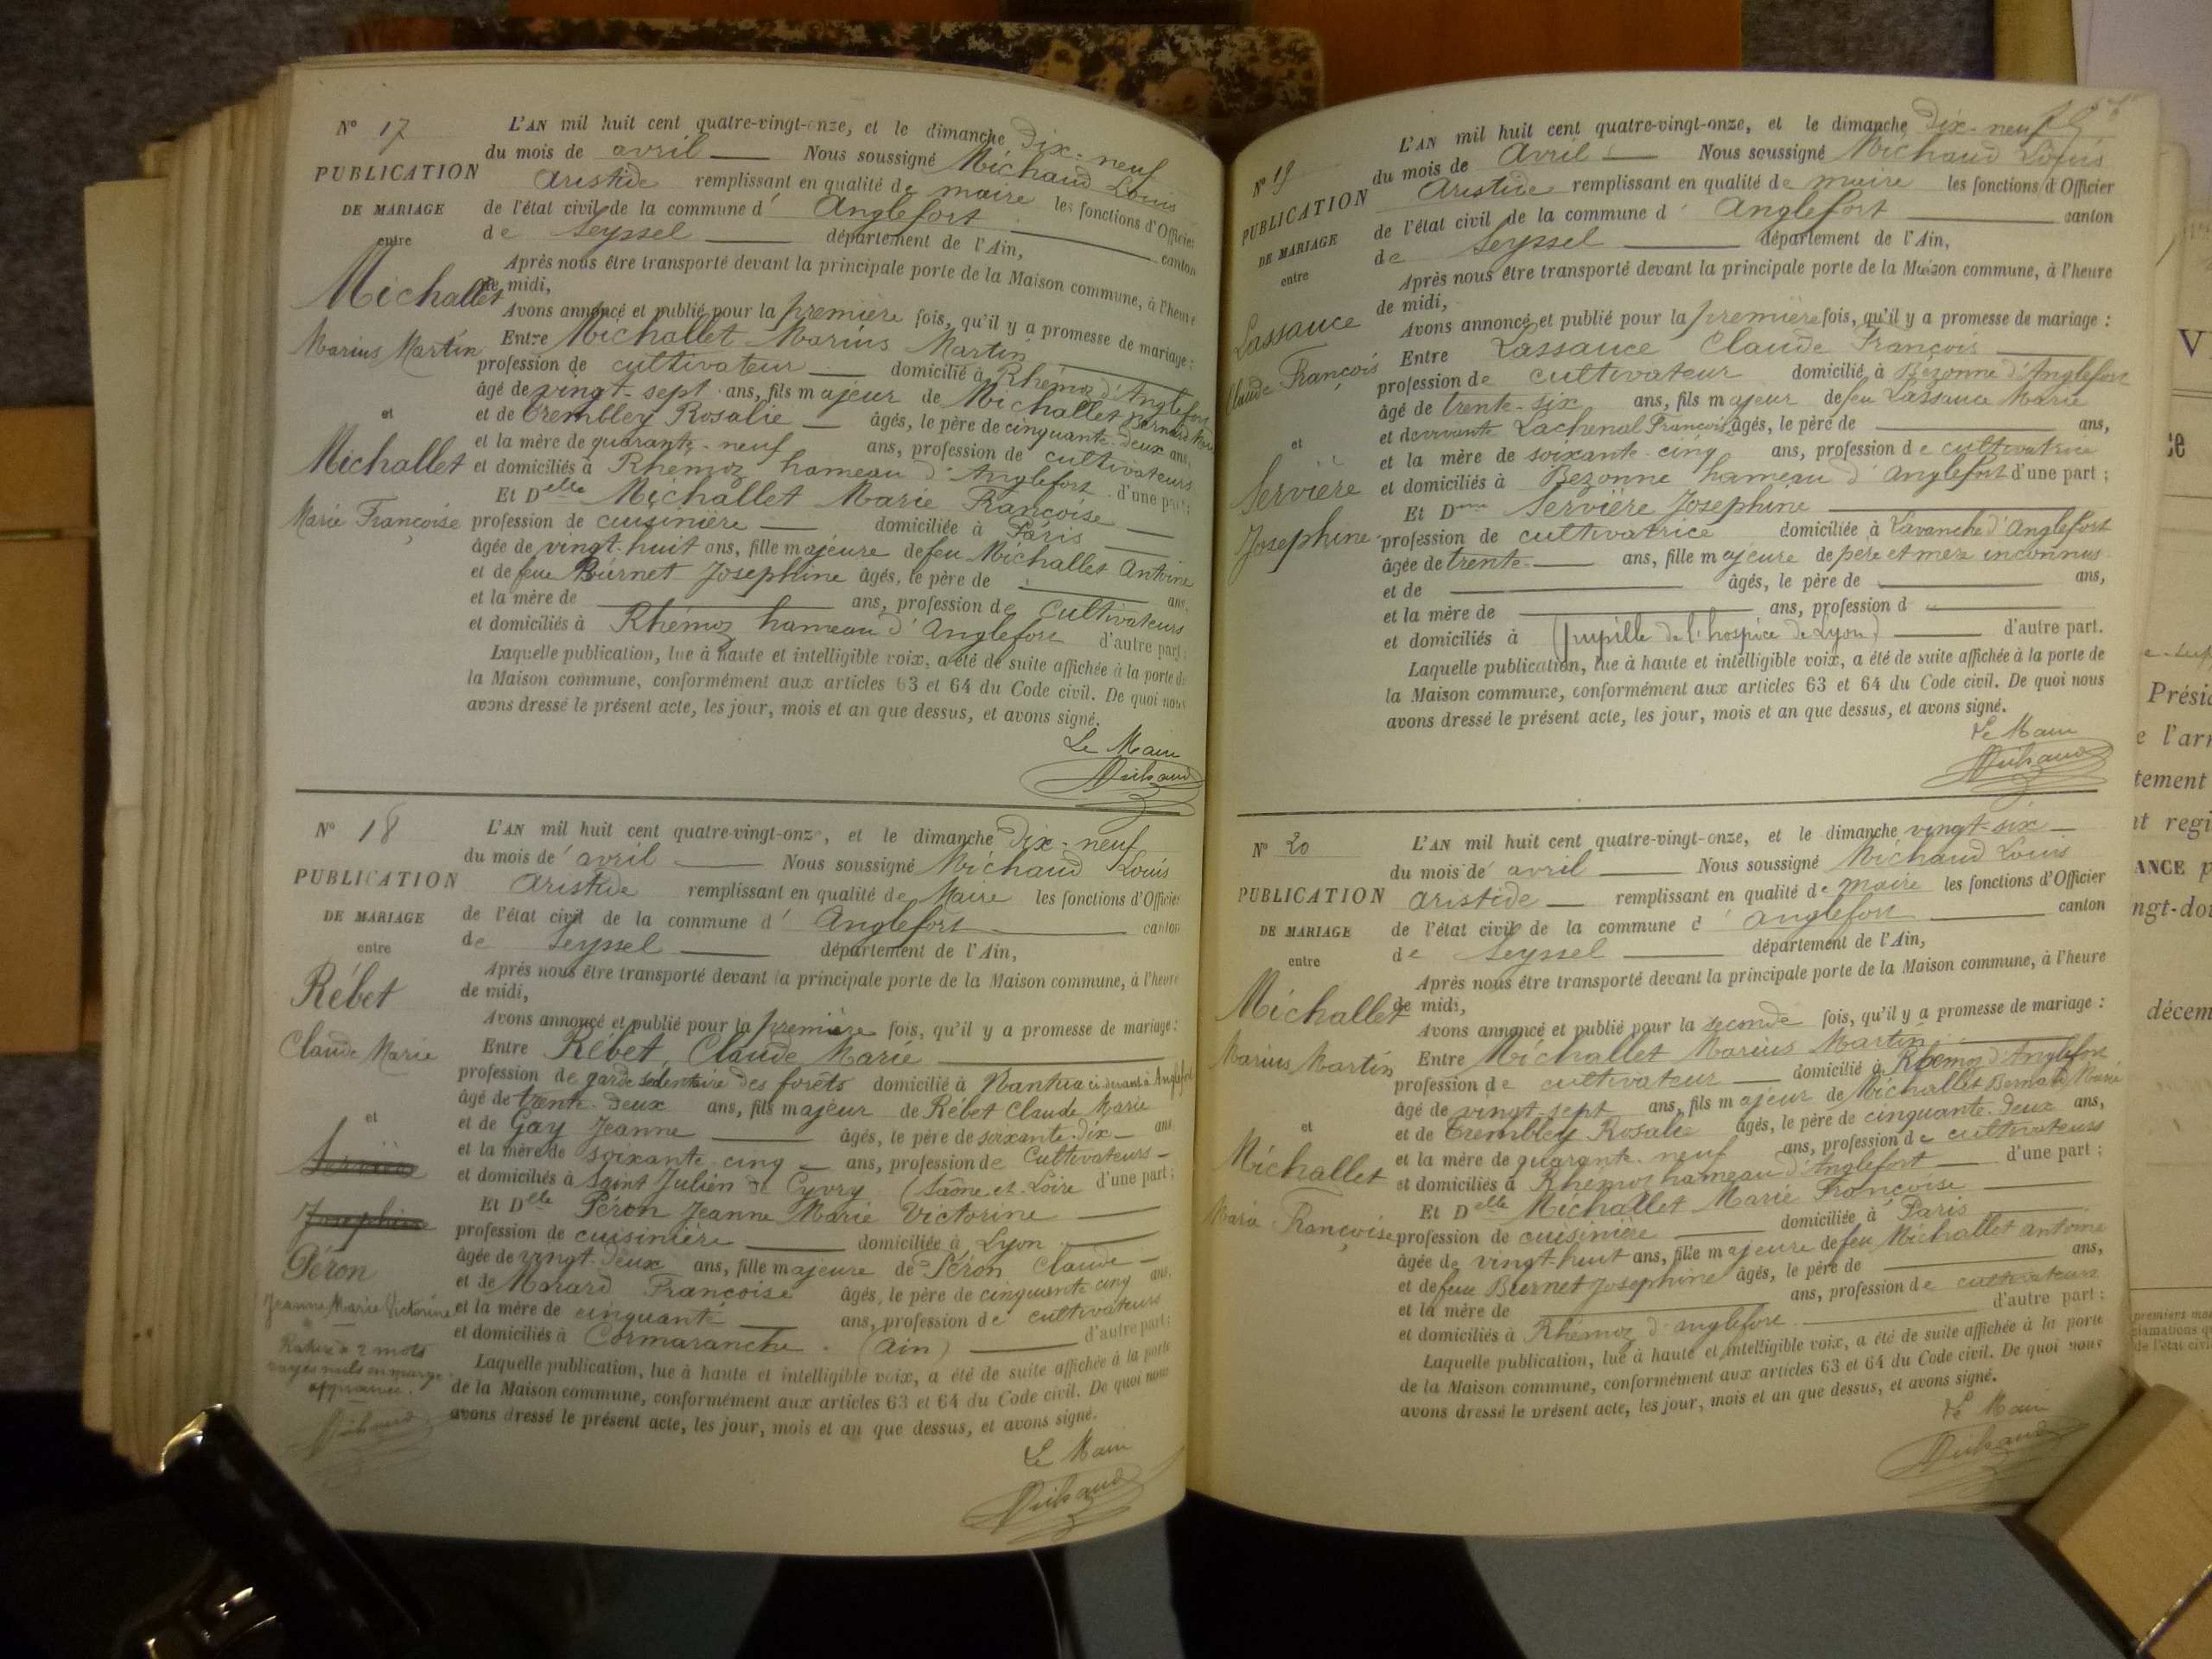 N° 17
PUBLICATION
DE MARIAGE
entre
Michallet
Marius Martin
et
Michallet
Marie Françoise
L'AN mil huit cent quatre-vingt-onze, et le dimanche Dix-neuf
du mois de avril Nous soussigné Michaud Louis
Aristide remplissant en qualité de maire les fonctions d'Officier
de l'état civil de la commune d' Anglefort canton
de Seyssel département de l'Ain,
Après nous être transporté devant la principale porte de la Maison commune, à l'heure
de midi,
Avons annoncé et publié pour la première fois, qu'il y a promesse de mariage :
Entre Michallet Marius Martin
profession de cultivateur domicilié à Rhémoz d'Anglefort
âgé de vingt-sept ans, fils majeur de Michallet Bernard Marie
et de Trembley Rosalie âgés, le père de cinquante-deux ans,
et la mère de quarante-neuf ans, profession de cultivateurs
et domiciliés à Rhémoz hameau d'Anglefort d'une part ;
Et Delle Michallet Marie Françoise
profession de cuisinière domiciliée à Paris
âgée de vingt-huit ans, fille majeure de feu Michallet Antoine
et de feue Burnet Josephine âgés, le père de ans,
et la mère de ans, profession de Cultivateurs
et domiciliés à Rhémoz hameau d'Anglefort d'autre part ;
Laquelle publication, lue à haute et intelligible voix, a été de suite affichée à la porte de
la Maison commune, conformément aux articles 63 et 64 du Code civil. De quoi nous
avons dressé le présent acte, les jour, mois et an que dessus, et avons signé.
Le Maire
Michaud
N° 18
PUBLICATION
DE MARIAGE
entre
Rébet
Claude Marie
et
Servière
Josephine
Péron
Jeanne Marie Victorine
L'AN mil huit cent quatre-vingt-onze, et le dimanche Dix-neuf
du mois de avril Nous soussigné Michaud Louis
Aristide remplissant en qualité de Maire les fonctions d'Officier
de l'état civil de la commune d' Anglefort canton
de Seyssel département de l'Ain,
Après nous être transporté devant la principale porte de la Maison commune, à l'heure
de midi,
Avons annoncé et publié pour la première fois, qu'il y a promesse de mariage :
Entre Rébet, Claude Marie
profession de garde sédentaire des forêts domicilié à Nantua ci-devant à Anglefort
âgé de trente-deux ans, fils majeur de Rébet Claude Marie
et de Gay Jeanne âgés, le père de soixante-dix ans
et la mère de soixante-cinq ans, profession de Cultivateurs
et domiciliés à Saint Julien de Cyvry (Saône-et-Loire d'une part ;
Et Delle Péron Jeanne Marie Victorine
profession de cuisinière domiciliée à Lyon
âgée de vingt-deux ans, fille majeure de Péron Claude
et de Morard Françoise âgés, le père de cinquante cinq ans,
et la mère de cinquante ans, profession de cultivateurs
et domiciliés à Cormaranche (Ain) d'autre part ;
Laquelle publication, lue à haute et intelligible voix, a été de suite affichée à la porte
de la Maison commune, conformément aux articles 63 et 64 du Code civil. De quoi nous
avons dressé le présent acte, les jour, mois et an que dessus, et avons signé.
2 mots
rayés nuls en marge
Michaud
Le Maire
Michaud
N° 19
PUBLICATION
DE MARIAGE
entre
Lassauce
Claude François
et
Servière
Josephine
L'AN mil huit cent quatre-vingt-onze, et le dimanche Dix-neuf
du mois de Avril Nous soussigné Michaud Louis
Aristide remplissant en qualité de maire les fonctions d'Officier
de l'état civil de la commune d' Anglefort canton
de Seyssel département de l'Ain,
Après nous être transporté devant la principale porte de la Maison commune, à l'heure
de midi,
Avons annoncé et publié pour la première fois, qu'il y a promesse de mariage :
Entre Lassauce Claude François
profession de cultivateur domicilié à Bezonne d'Anglefort
âgé de trente-six ans, fils majeur de feu Lassauce Marie
et de vivante Lachenal Françoise âgés, le père de ans,
et la mère de soixante-cinq ans, profession de cultivatrice
et domiciliés à Bezonne hameau d'Anglefort d'une part ;
Et D Servière Josephine
profession de cultivatrice domiciliée à Lavanche d'Anglefort
âgée de trente ans, fille majeure de père et mère inconnus
et de âgés, le père de ans,
et la mère de ans, profession d
et domiciliés à (pupille de l'hospice de Lyon) d'autre part.
Laquelle publication, lue à haute et intelligible voix, a été de suite affichée à la porte de
la Maison commune, conformément aux articles 63 et 64 du Code civil. De quoi nous
avons dressé le présent acte, les jour, mois et an que dessus, et avons signé.
Le Maire
Michaud
N° 20
PUBLICATION
DE MARIAGE
entre
Michallet
Marius Martin
et
Michallet
Marie Françoise
L'AN mil huit cent quatre-vingt-onze, et le dimanche vingt-six
du mois de avril Nous soussigné Michaud Louis
Aristide remplissant en qualité de maire les fonctions d'Officier
de l'état civil de la commune d' Anglefort canton
de Seyssel département de l'Ain,
Après nous être transporté devant la principale porte de la Maison commune, à l'heure
de midi,
Avons annoncé et publié pour la seconde fois, qu'il y a promesse de mariage :
Entre Michallet Marius Martin
profession de cultivateur domicilié à Rhémoz d'Anglefort
âgé de vingt-sept ans, fils majeur de Michallet Bernard Marie
et de Trembley Rosalie âgés, le père de cinquante-deux ans,
et la mère de quarante-neuf ans, profession de cultivateurs
et domiciliés à Rhémoz hameau d'Anglefort d'une part ;
Et Delle Michallet Marie Françoise
profession de cuisinière domiciliée à Paris
âgée de vingt-huit ans, fille majeure de feu Michallet Antoine
et de feue Burnet Josephine âgés, le père de ans,
et la mère de ans, profession de cultivateurs
et domiciliés à Rhémoz d'Anglefort d'autre part ;
Laquelle publication, lue à haute et intelligible voix, a été de suite affichée à la porte
de la Maison commune, conformément aux articles 63 et 64 du Code civil. De quoi nous
avons dressé le présent acte, les jour, mois et an que dessus, et avons signé.
Le Maire
Michaud